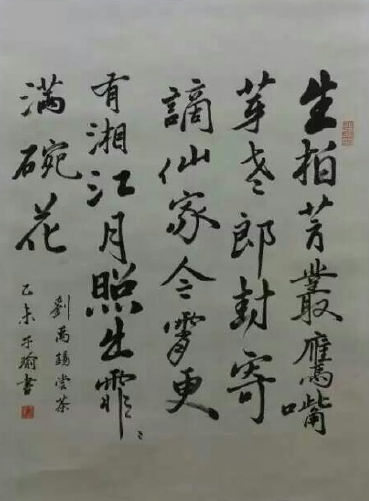 生拍芳叢鷹嘴
芽老郎封寄
謫仙家今霄更
有湘江月照出霏〻
滿碗花
劉禹錫嘗茶
乙未 瑜書